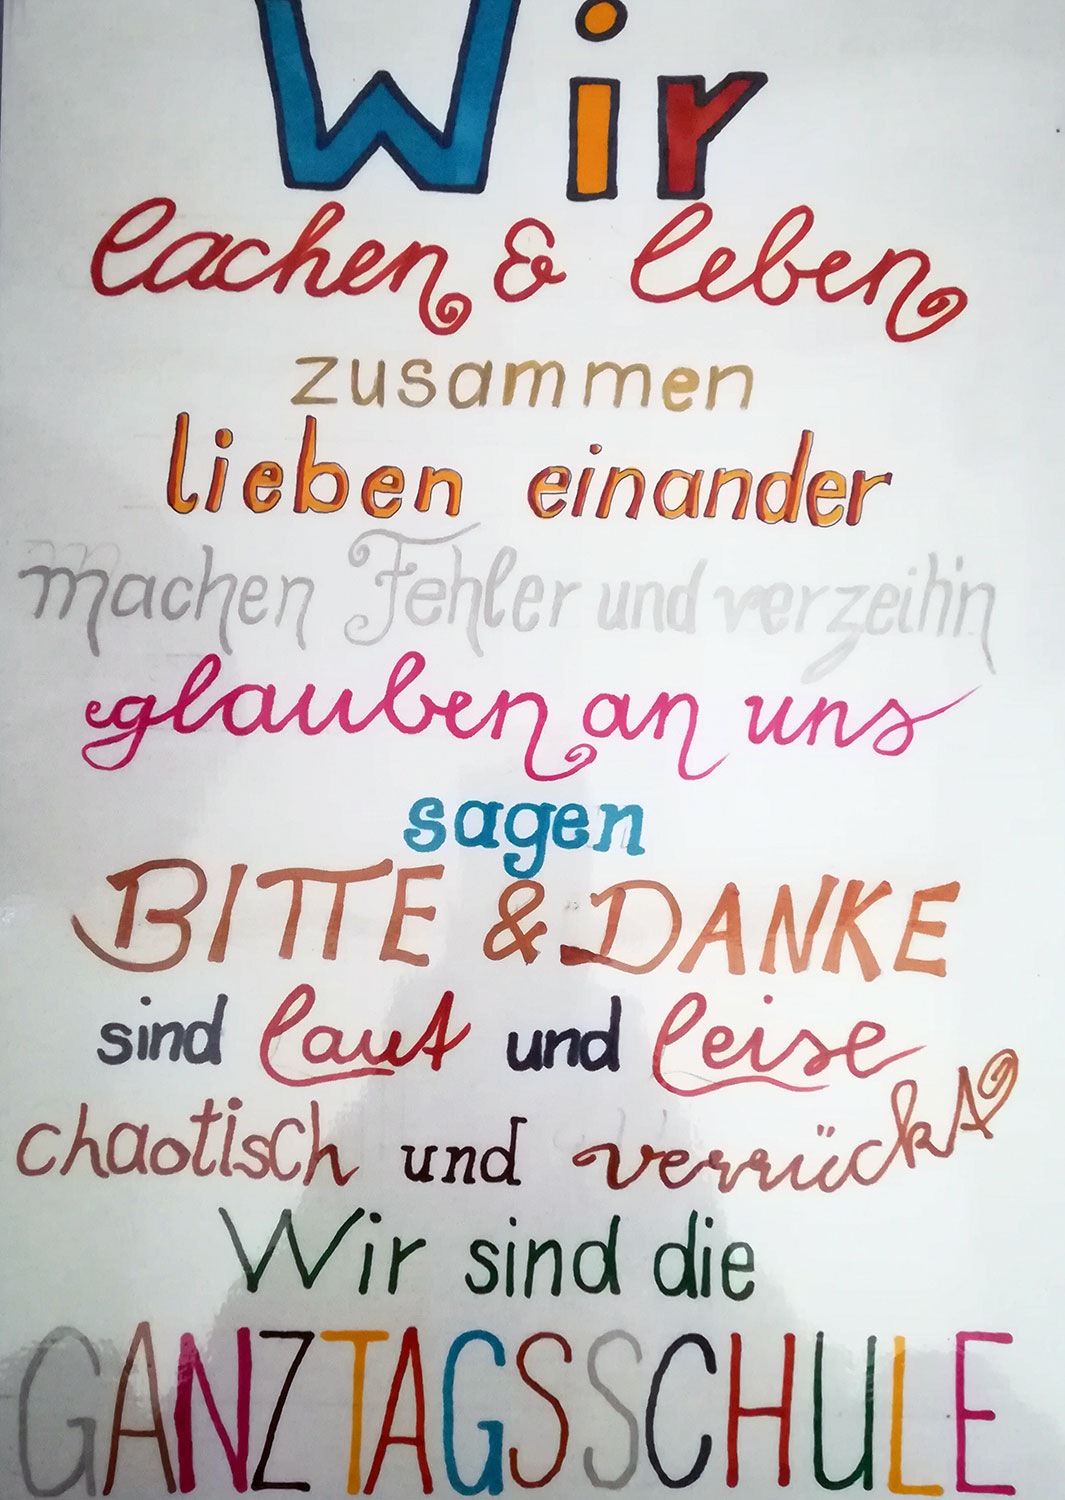 Wir
lachen & leben
zusammen
lieben einander
machen Fehler und verzeihn
glauben an uns
sagen
BITTE & DANKE
sind laut und leise
chaotisch und verrückt
Wir sind die
GANZTAGSSCHULE